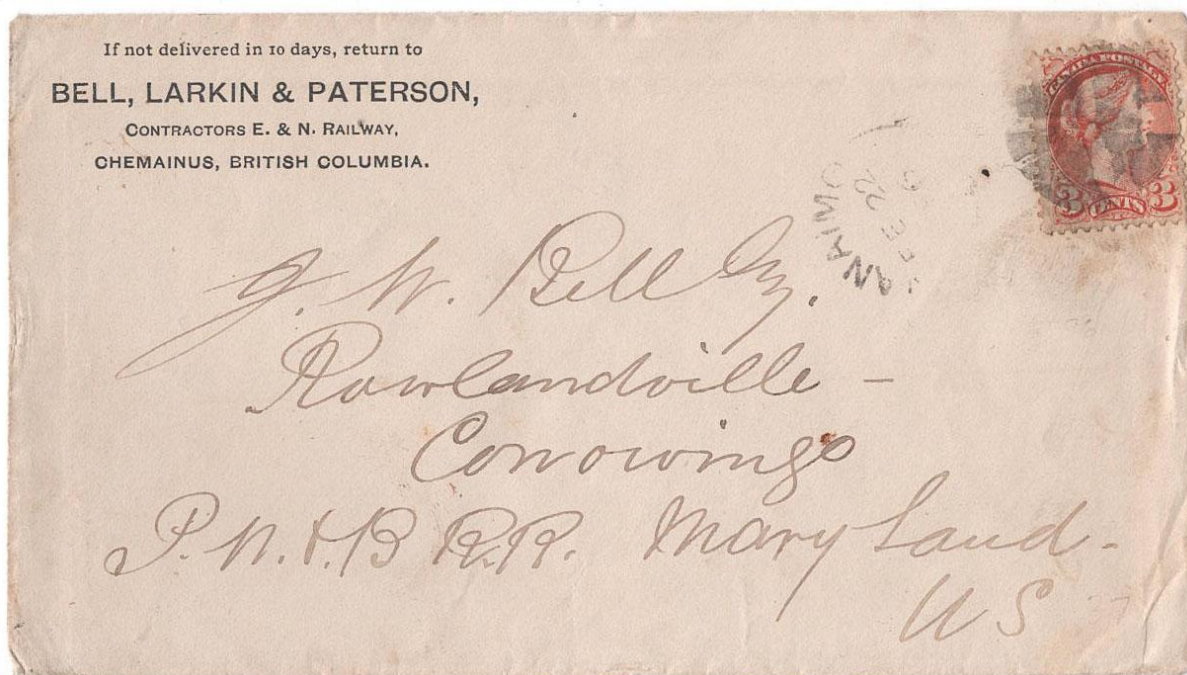 If not delivered in 10 days, return to
BELL, LARKIN & PATERSON,
CONTRACTORS E. & N. RAILWAY,
CHEMAINUS, BRITISH COLUMBIA.
CANADA POSTAGE
3 CENTS 3
NANAIMO
22
J. W. Bell Esq.
Rowlandville –
Conowingo
P. W. & B R.R. Maryland -
US